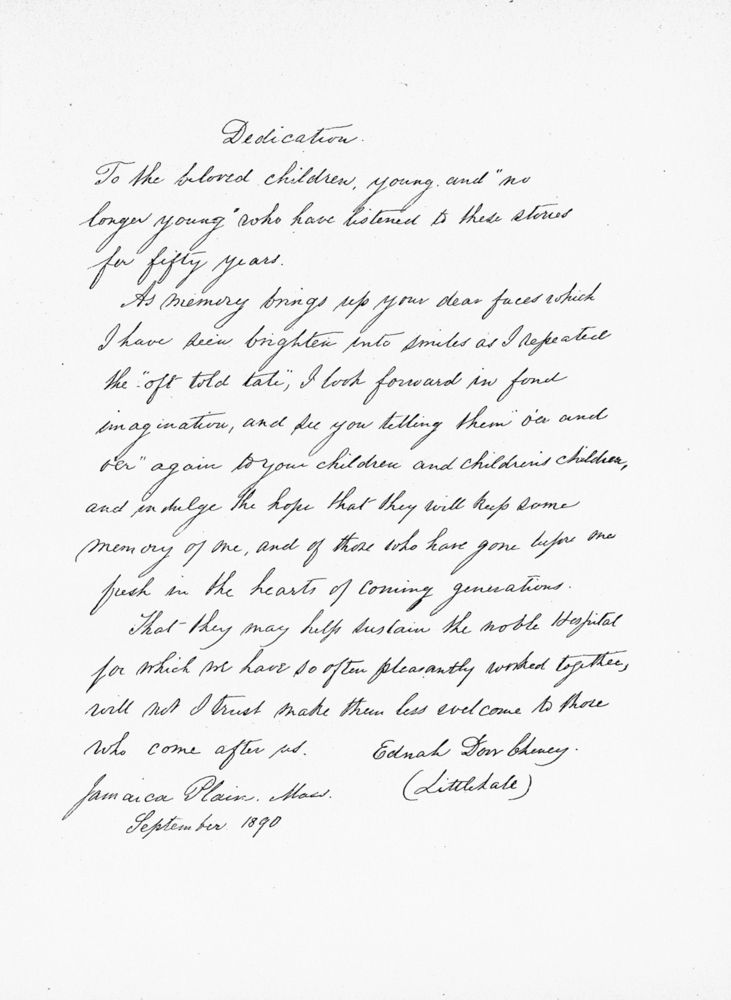 Dedication.
To the beloved children, young and "no
longer young" who have listened to these stories
for fifty years.
As memory brings up your dear faces which
I have seen brighten into smiles as I repeated
the "oft told tale", I look forward in fond
imagination, and see you telling them "o'er and
o'er" again to your children and children's children,
and indulge the hope that they will keep some
memory of me, and of those who have gone before me
fresh in the hearts of coming generations.
That they may help sustain the noble Hospital
for which we have so often pleasantly worked together,
will not I trust make them less welcome to those
who come after us. Ednah Dow Cheney.
Jamaica Plain. Mass. (Littlehale)
September 1890